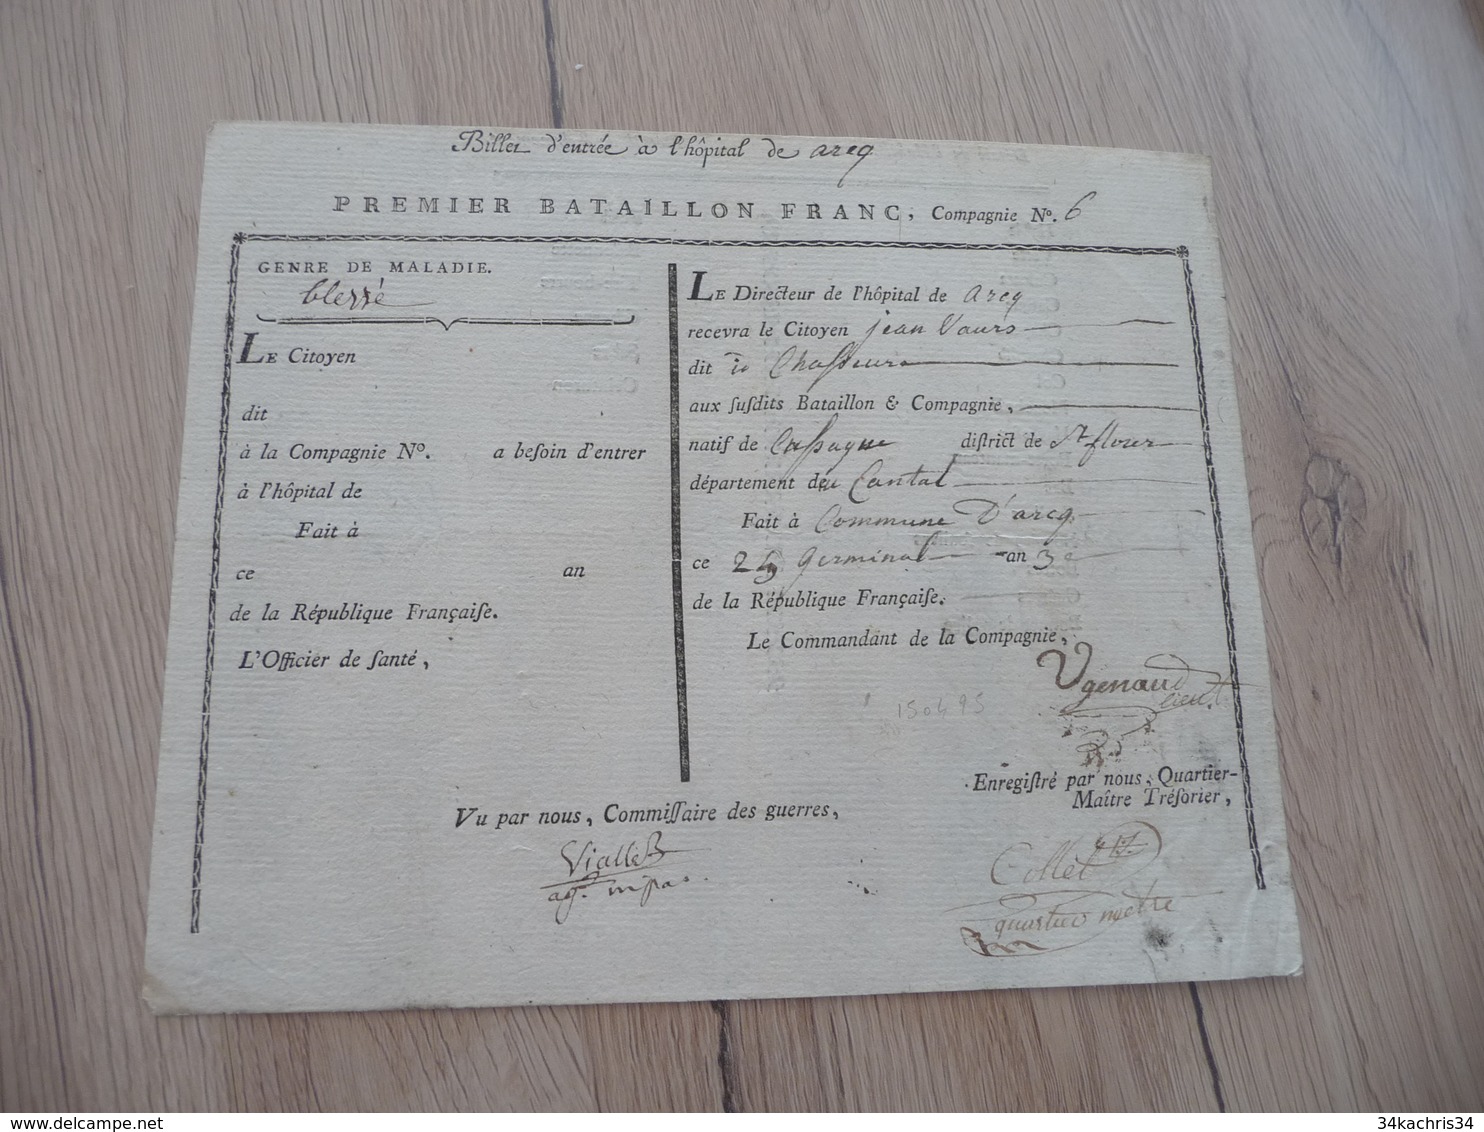 Billet d'entrée à l'hôpital de arcq
PREMIER BATAILLON FRANC, Compagnie Nº. 6
GENRE DE MALADIE.
blessé
LE Citoyen
dit
à la Compagnie Nº. a beſoin d'entrer
à l'hôpital de
Fait à
ce an
de la République Françaiſe.
L'Officier de ſanté,
LE Directeur de l'hôpital de arcq
recevra le Citoyen jean Vaurs
dit Chasseur
aux ſuſdits Bataillon & Compagnie,
natif de Cassagne diſtrict de St flour
département du Cantal
Fait à Commune D'arcq
ce germinal an 3e
de la République Françaiſe.
Le Commandant de la Compagnie,
Vgenaud
lieut
150495
Enregiſtré par nous, Quartier-
Maître Tréſorier,
Vu par nous, Commiſſaire des guerres,
Viallet
Collet
quartier maitre
34kachris34
delcampe.net